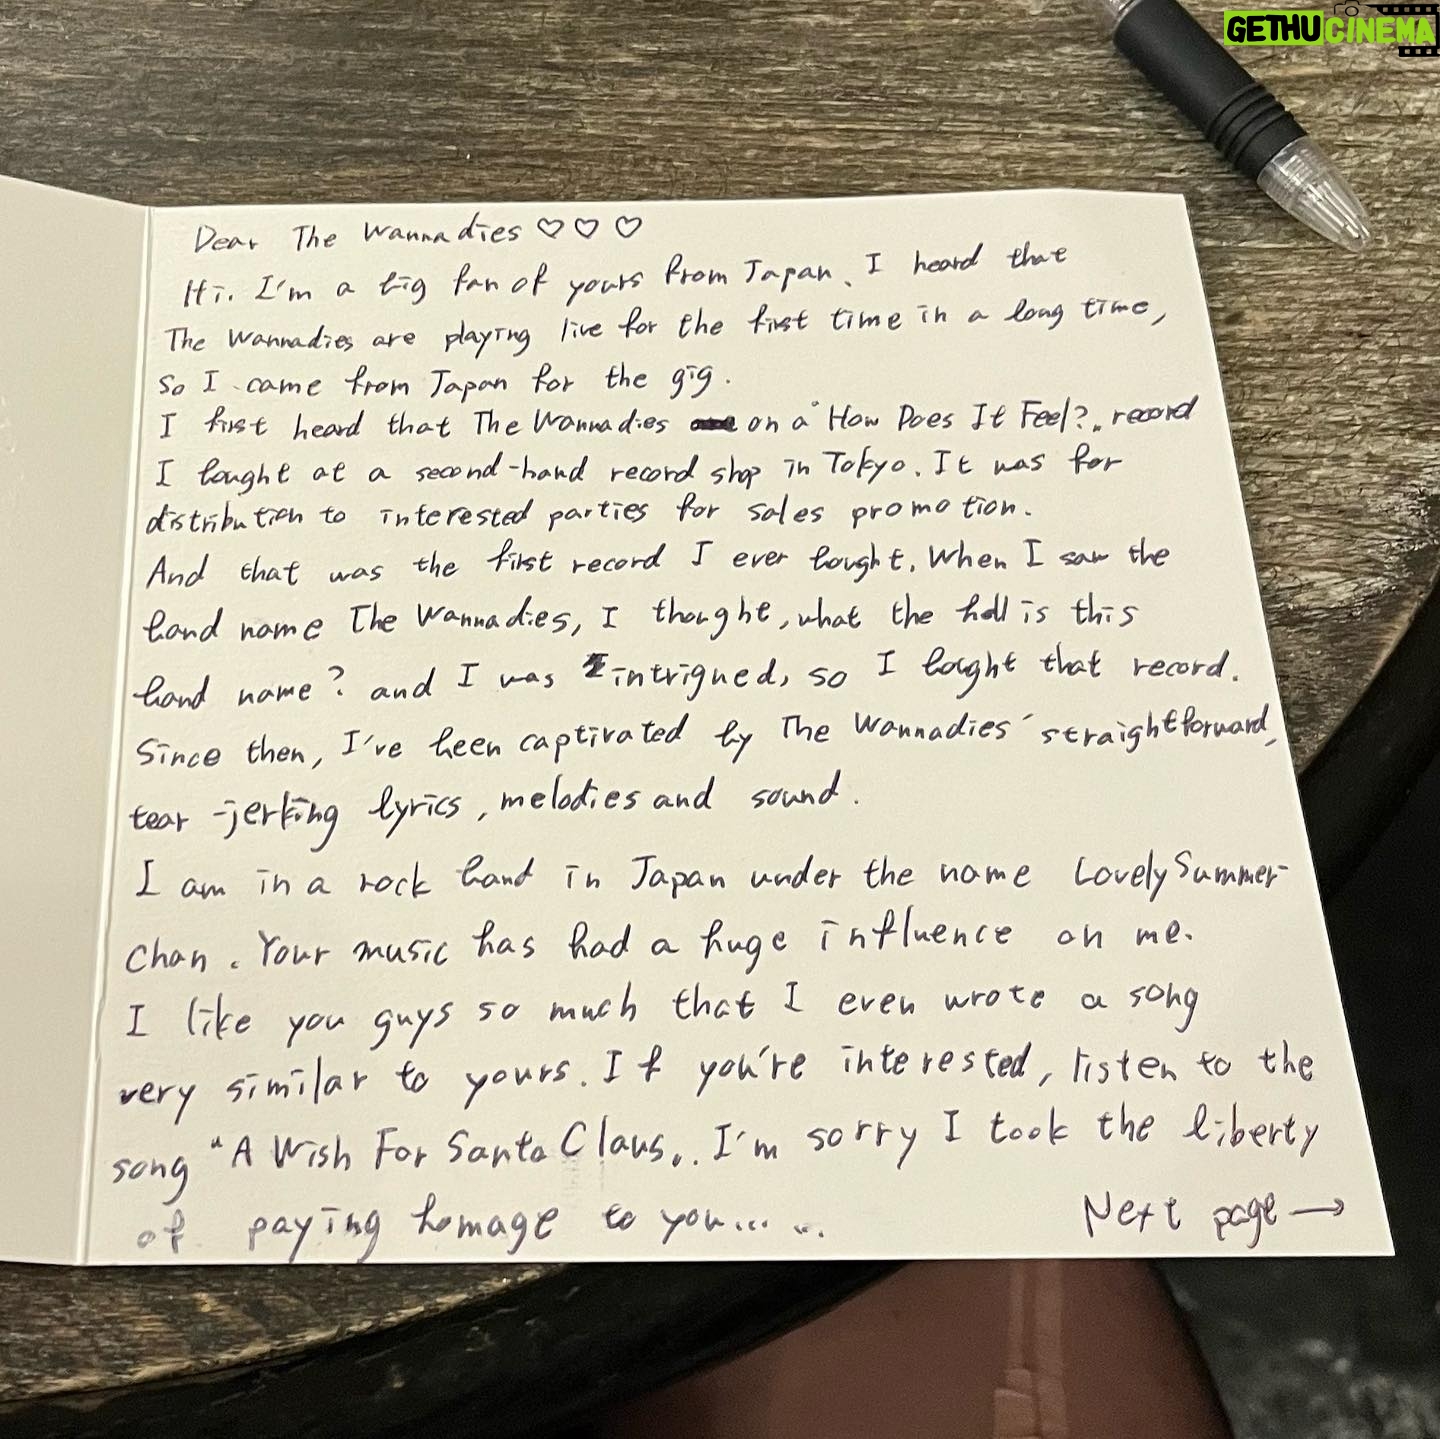 GETHUCINEMA
Dear The Wannadies ♡♡♡
Hi. I'm a big fan of yours from Japan. I heard that
The Wannadies are playing live for the first time in a long time,
So I came from Japan for the gig.
I first heard that The Wannadies on a "How Does It Feel?" record
I bought at a second-hand record shop in Tokyo. It was for
distribution to interested parties for sales promotion.
And that was the first record I ever bought. When I saw the
band name The Wannadies, I thought, what the hell is this
band name? and I was intrigued, so I bought that record.
Since then, I've been captivated by The Wannadies' straightforward,
tear-jerking lyrics, melodies and sound.
I am in a rock band in Japan under the name Lovely Summer-
Chan. Your music has had a huge influence on me.
I like you guys so much that I even wrote a song
very similar to yours. If you're interested, listen to the
song "A Wish For Santa Claus„. I'm sorry I took the liberty
of paying homage to you......
Next page →